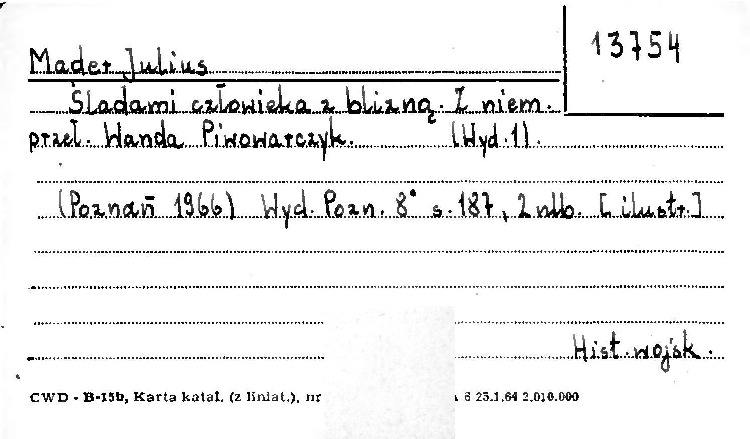 13754
Mader Julius
Śladami człowieka z blizną. Z niem.
przeł. Wanda Piwowarczyk. (Wyd. 1).
(Poznań 1966) Wyd. Pozn. 8° s. 187, 2 nlb. [ilustr.]
Hist. wojsk.
CWD - B-15b, Karta katal. (z liniat.), nr 6 23.1.64 2.010.000